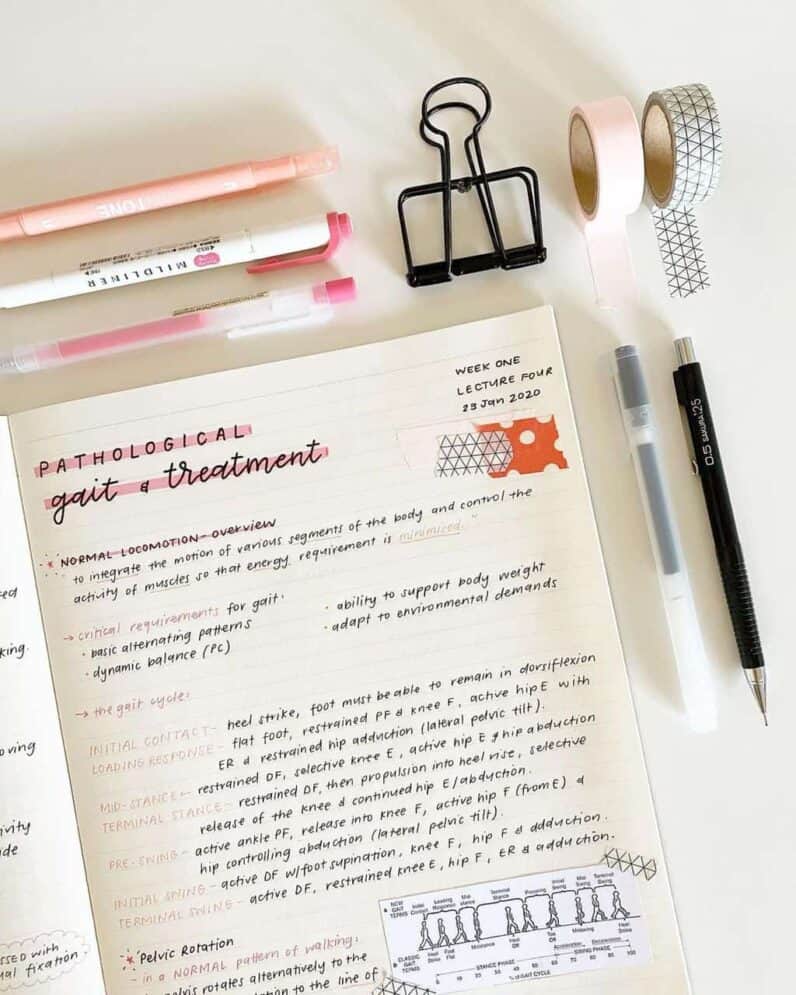 TONE
MILDLINER
0.5 SAKURA '25
WEEK ONE
LECTURE FOUR
23 Jan 2020
PATHOLOGICAL
gait & treatment
* NORMAL LOCOMOTION - overview
to integrate the motion of various segments of the body and control the
activity of muscles so that energy requirement is minimised."
→ critical requirements for gait:
· basic alternating patterns
· dynamic balance (PC)
· ability to support body weight
· adapt to environmental demands
→ the gait cycle:
INITIAL CONTACT - heel strike, foot must be able to remain in dorsiflexion
LOADING RESPONSE - flat foot, restrained PF & knee F, active hip E with
ER & restrained hip adduction (lateral pelvic tilt).
MID-STANCE - restrained DF, selective knee E, active hip E & hip abduction
TERMINAL STANCE - restrained DF, then propulsion into heel rise, selective
release of the knee & continued hip E/abduction.
PRE-SWING - active ankle PF, release into knee F, active hip F (from E) &
hip controlling abduction (lateral pelvic tilt).
INITIAL SWING - active DF w/foot supination, knee F, hip F & adduction.
TERMINAL SWING - active DF, restrained knee E, hip F, ER & adduction.
* Pelvic Rotation
- in a NORMAL pattern of walking:
rotates alternatively to the
to the line of
king.
oving
ivity
with
fixation.
NEW
GAIT
TERMS
Initial
Contact
Loading
Response
Mid
stance
Terminal
Stance
Preswing
Initial
Swing
Mid
Swing
Terminal
Swing
CLASSIC
GAIT
TERMS
Heel
Strike
Foot
Flat
Midstance
Heel
Off
Toe
Off
Midswing
Heel
Strike
Acceleration
Deceleration
STANCE PHASE
SWING PHASE
0 10 20 30 40 50 60 70 80 90 100
% of GAIT CYCLE